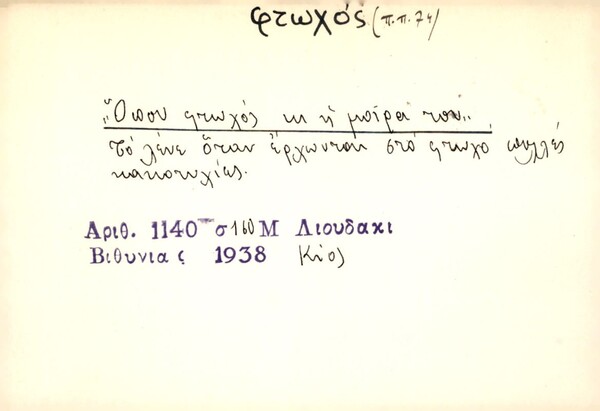 φτωχός (π.π. 74)
"Ὅπου φτωχός κι ἡ μοῖρα του"
Τό λένε ὅταν ἔρχωνται στό φτωχό πολλές
κακοτυχίες.
Αριθ. 1140 σ 160 Μ Λιουδακι
Βιθυνιας 1938 Κίος